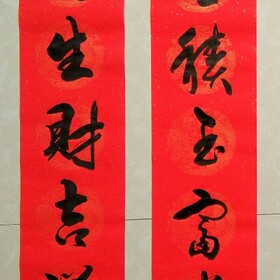 積玉富
生財吉祥